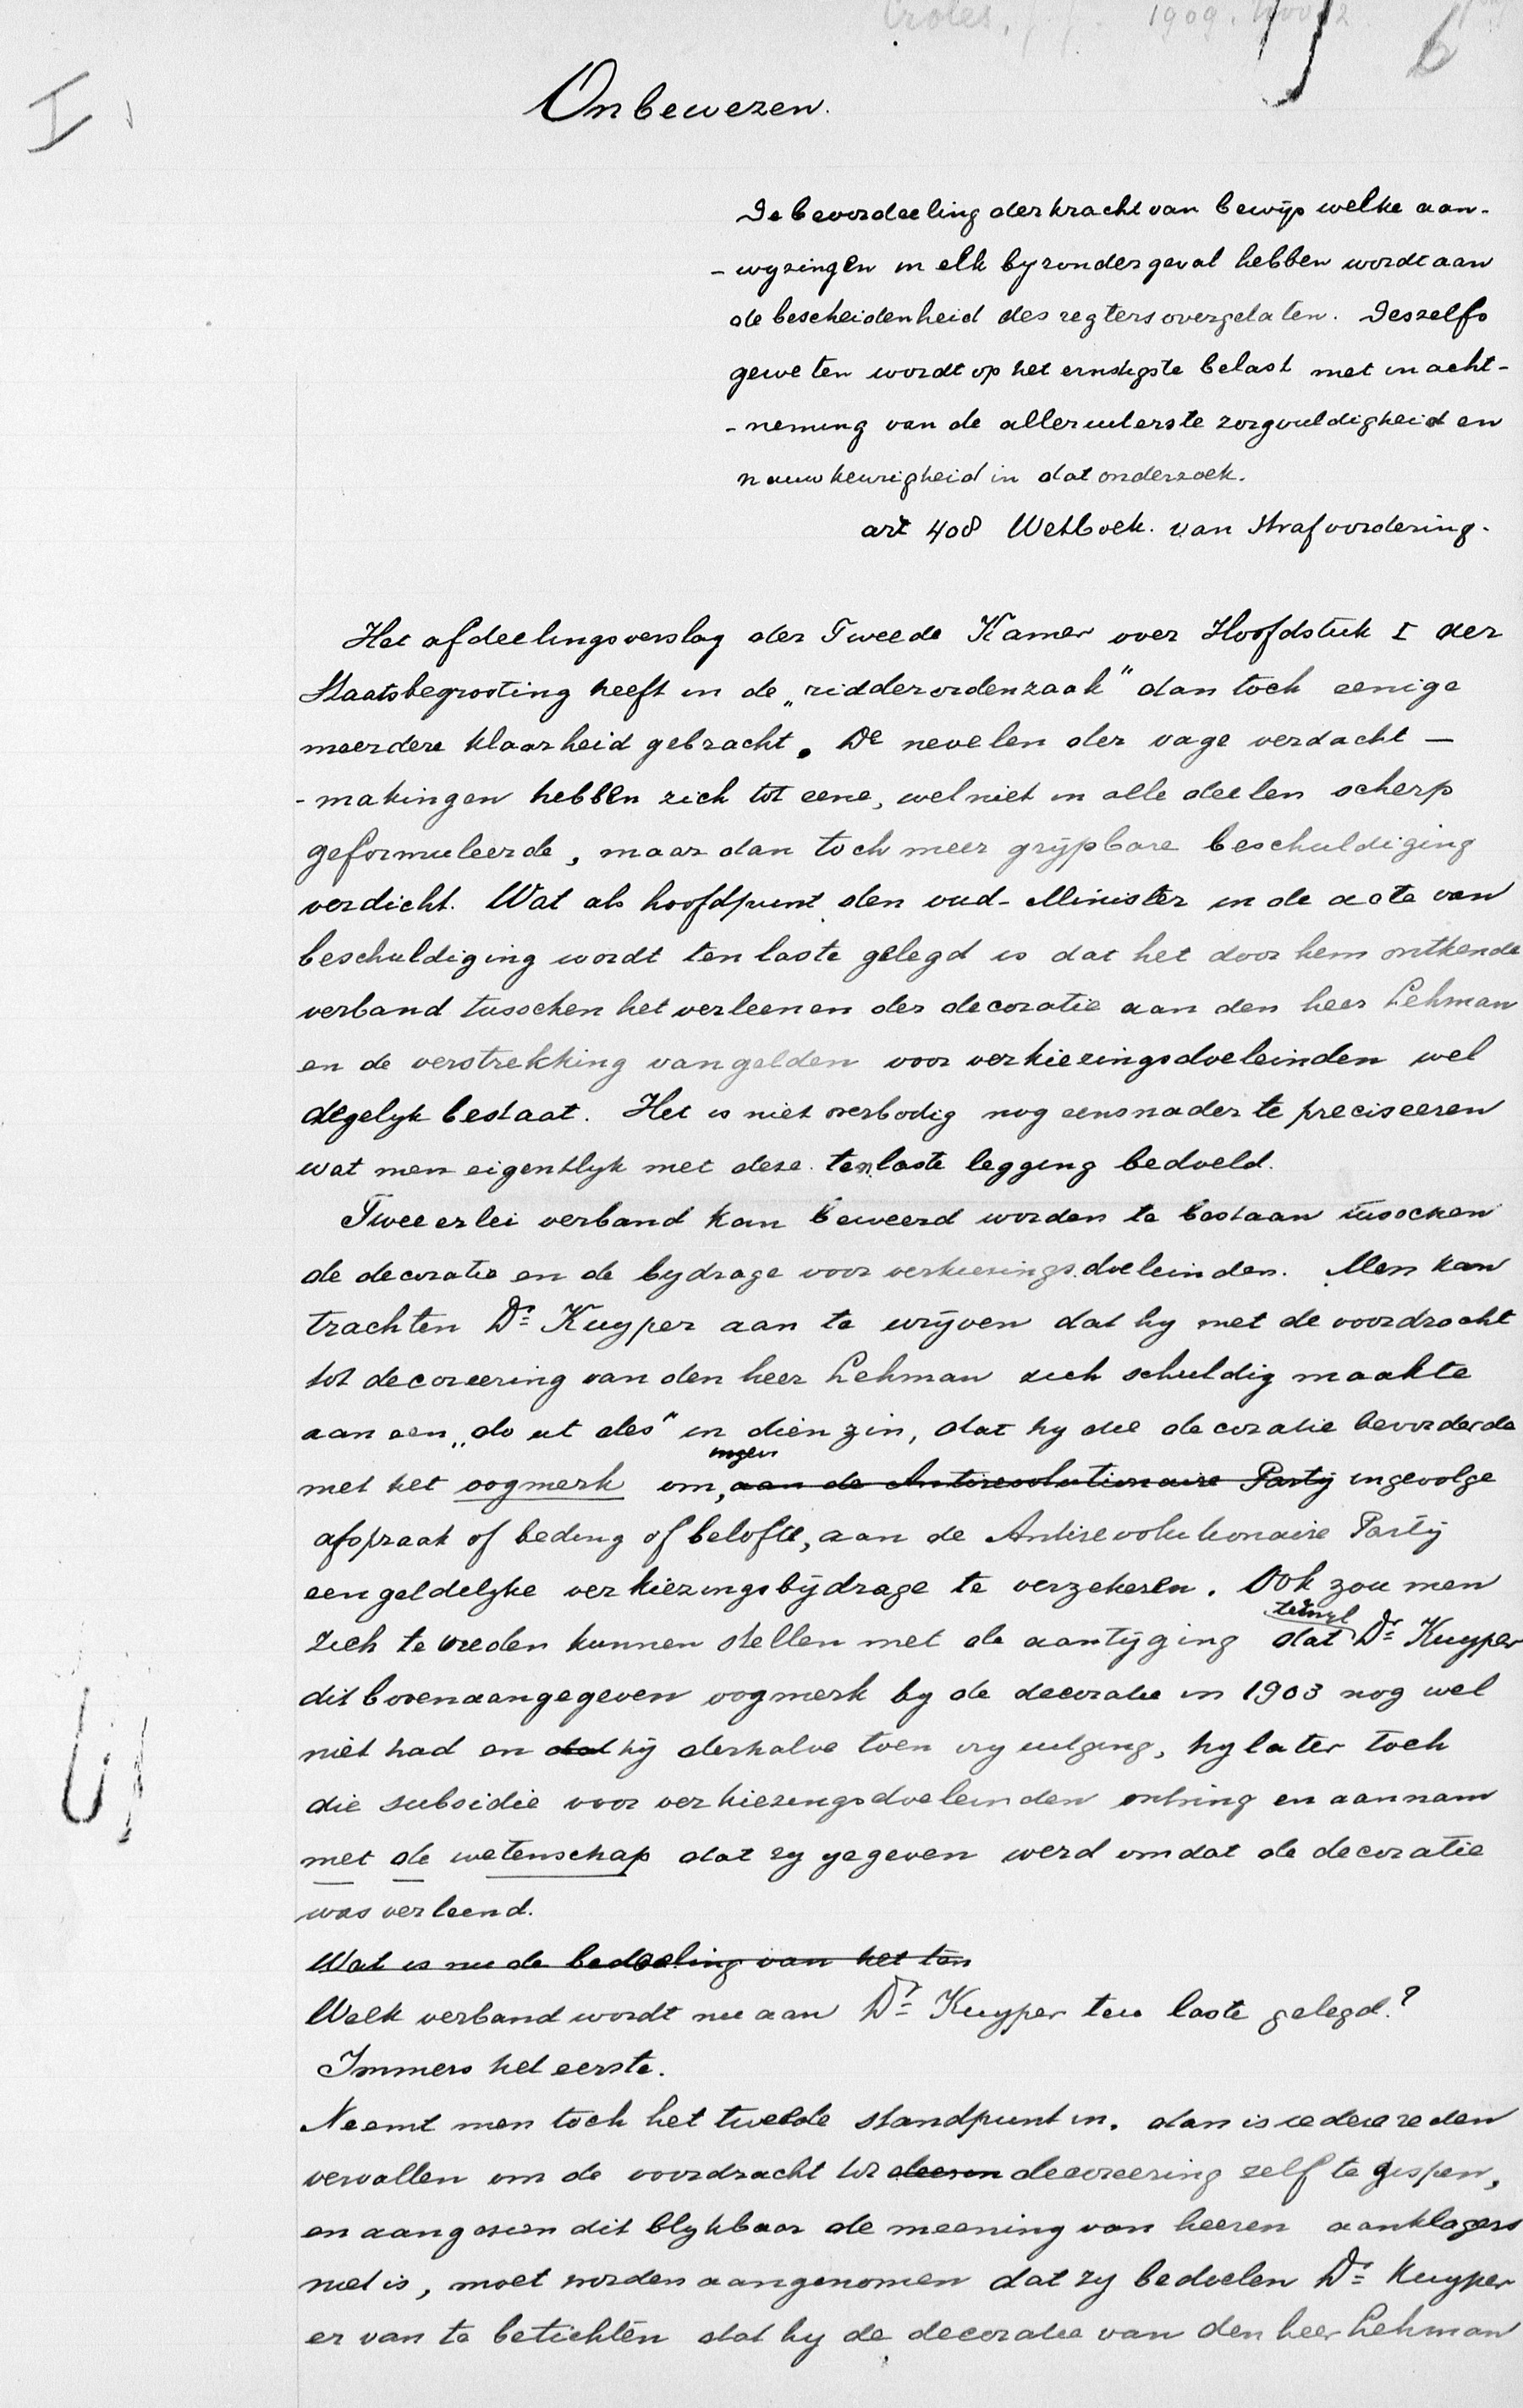 Croles, J.J. 1909. Nov. 2
6
I
Onbewezen.
De beoordeeling der kracht van bewijs welke aan-
- wyzingen in elk byzonder geval hebben wordt aan
de bescheidenheid des regters overgelaten. Deszelfs
geweten wordt op het ernstigste belast met inacht-
- neming van de alleruiterste zorgvuldigheid en
nauwkeurigheid in dat onderzoek.
art 408 Wetboek. van Strafvordering.
Het afdeelingsverslag der Tweede Kamer over Hoofdstuk I der
Staatsbegrooting heeft in de „ridderordenzaak" dan toch eenige
meerdere klaarheid gebracht. De nevelen der vage verdacht —
- makingen hebben zich tot eene, wel niet in alle deelen scherp
geformuleerde, maar dan toch meer grijpbare beschuldiging
verdicht. Wat als hoofdpunt den oud-Minister in de acte van
beschuldiging wordt ten laste gelegd is dat het door hem ontkende
verband tusschen het verleenen der decoratie aan den heer Lehman
en de verstrekking van gelden voor verkiezingsdoeleinden wel
degelyk bestaat. Het is niet overbodig nog eens nader te preciseeren
wat men eigentlyk met deze ten laste legging bedoeld.
Tweeerlei verband kan beweerd worden te bestaan tusschen
de decoratie en de bydrage voor verkiezings doeleinden. Men kan
trachten Dr Kuyper aan te wrijven dat hy met de voordracht
tot decoreering van den heer Lehman zich schuldig maakte
aan een „do ut des" in dien zin, dat hy die decoratie bevorderde
met het oogmerk om, aan de Antirevolutionaire Party ingevolge
afspraak of beding of belofte, aan de Antirevolutionaire Partij
een geldelyke verkiezingsbijdrage te verzekeren. Ook zou men
terwyl
zich te vreden kunnen stellen met de aantijging dat Dr Kuyper
dit bovenaangegeven oogmerk by de decoratie in 1903 nog wel
niet had en dat hij derhalve toen vry uitging, hy later toch
die subsidie voor verkiezingsdoeleinden ontving en aannam
met de wetenschap dat zy gegeven werd omdat de decoratie
was verleend.
Wat is nu de bedoeling van het ten
Welk verband wordt nu aan Dr Kuyper ten laste gelegd?
Immers het eerste.
Neemt men toch het tweede standpunt in. dan is iedere reden
vervallen om de voordracht tot decoreering zelf te gispen,
en aangezien dit blykbaar de meening van heeren aanklagers
niet is, moet worden aangenomen dat zy bedoelen Dr Kuyper
er van te betichten dat hy de decoratie van den heer Lehman